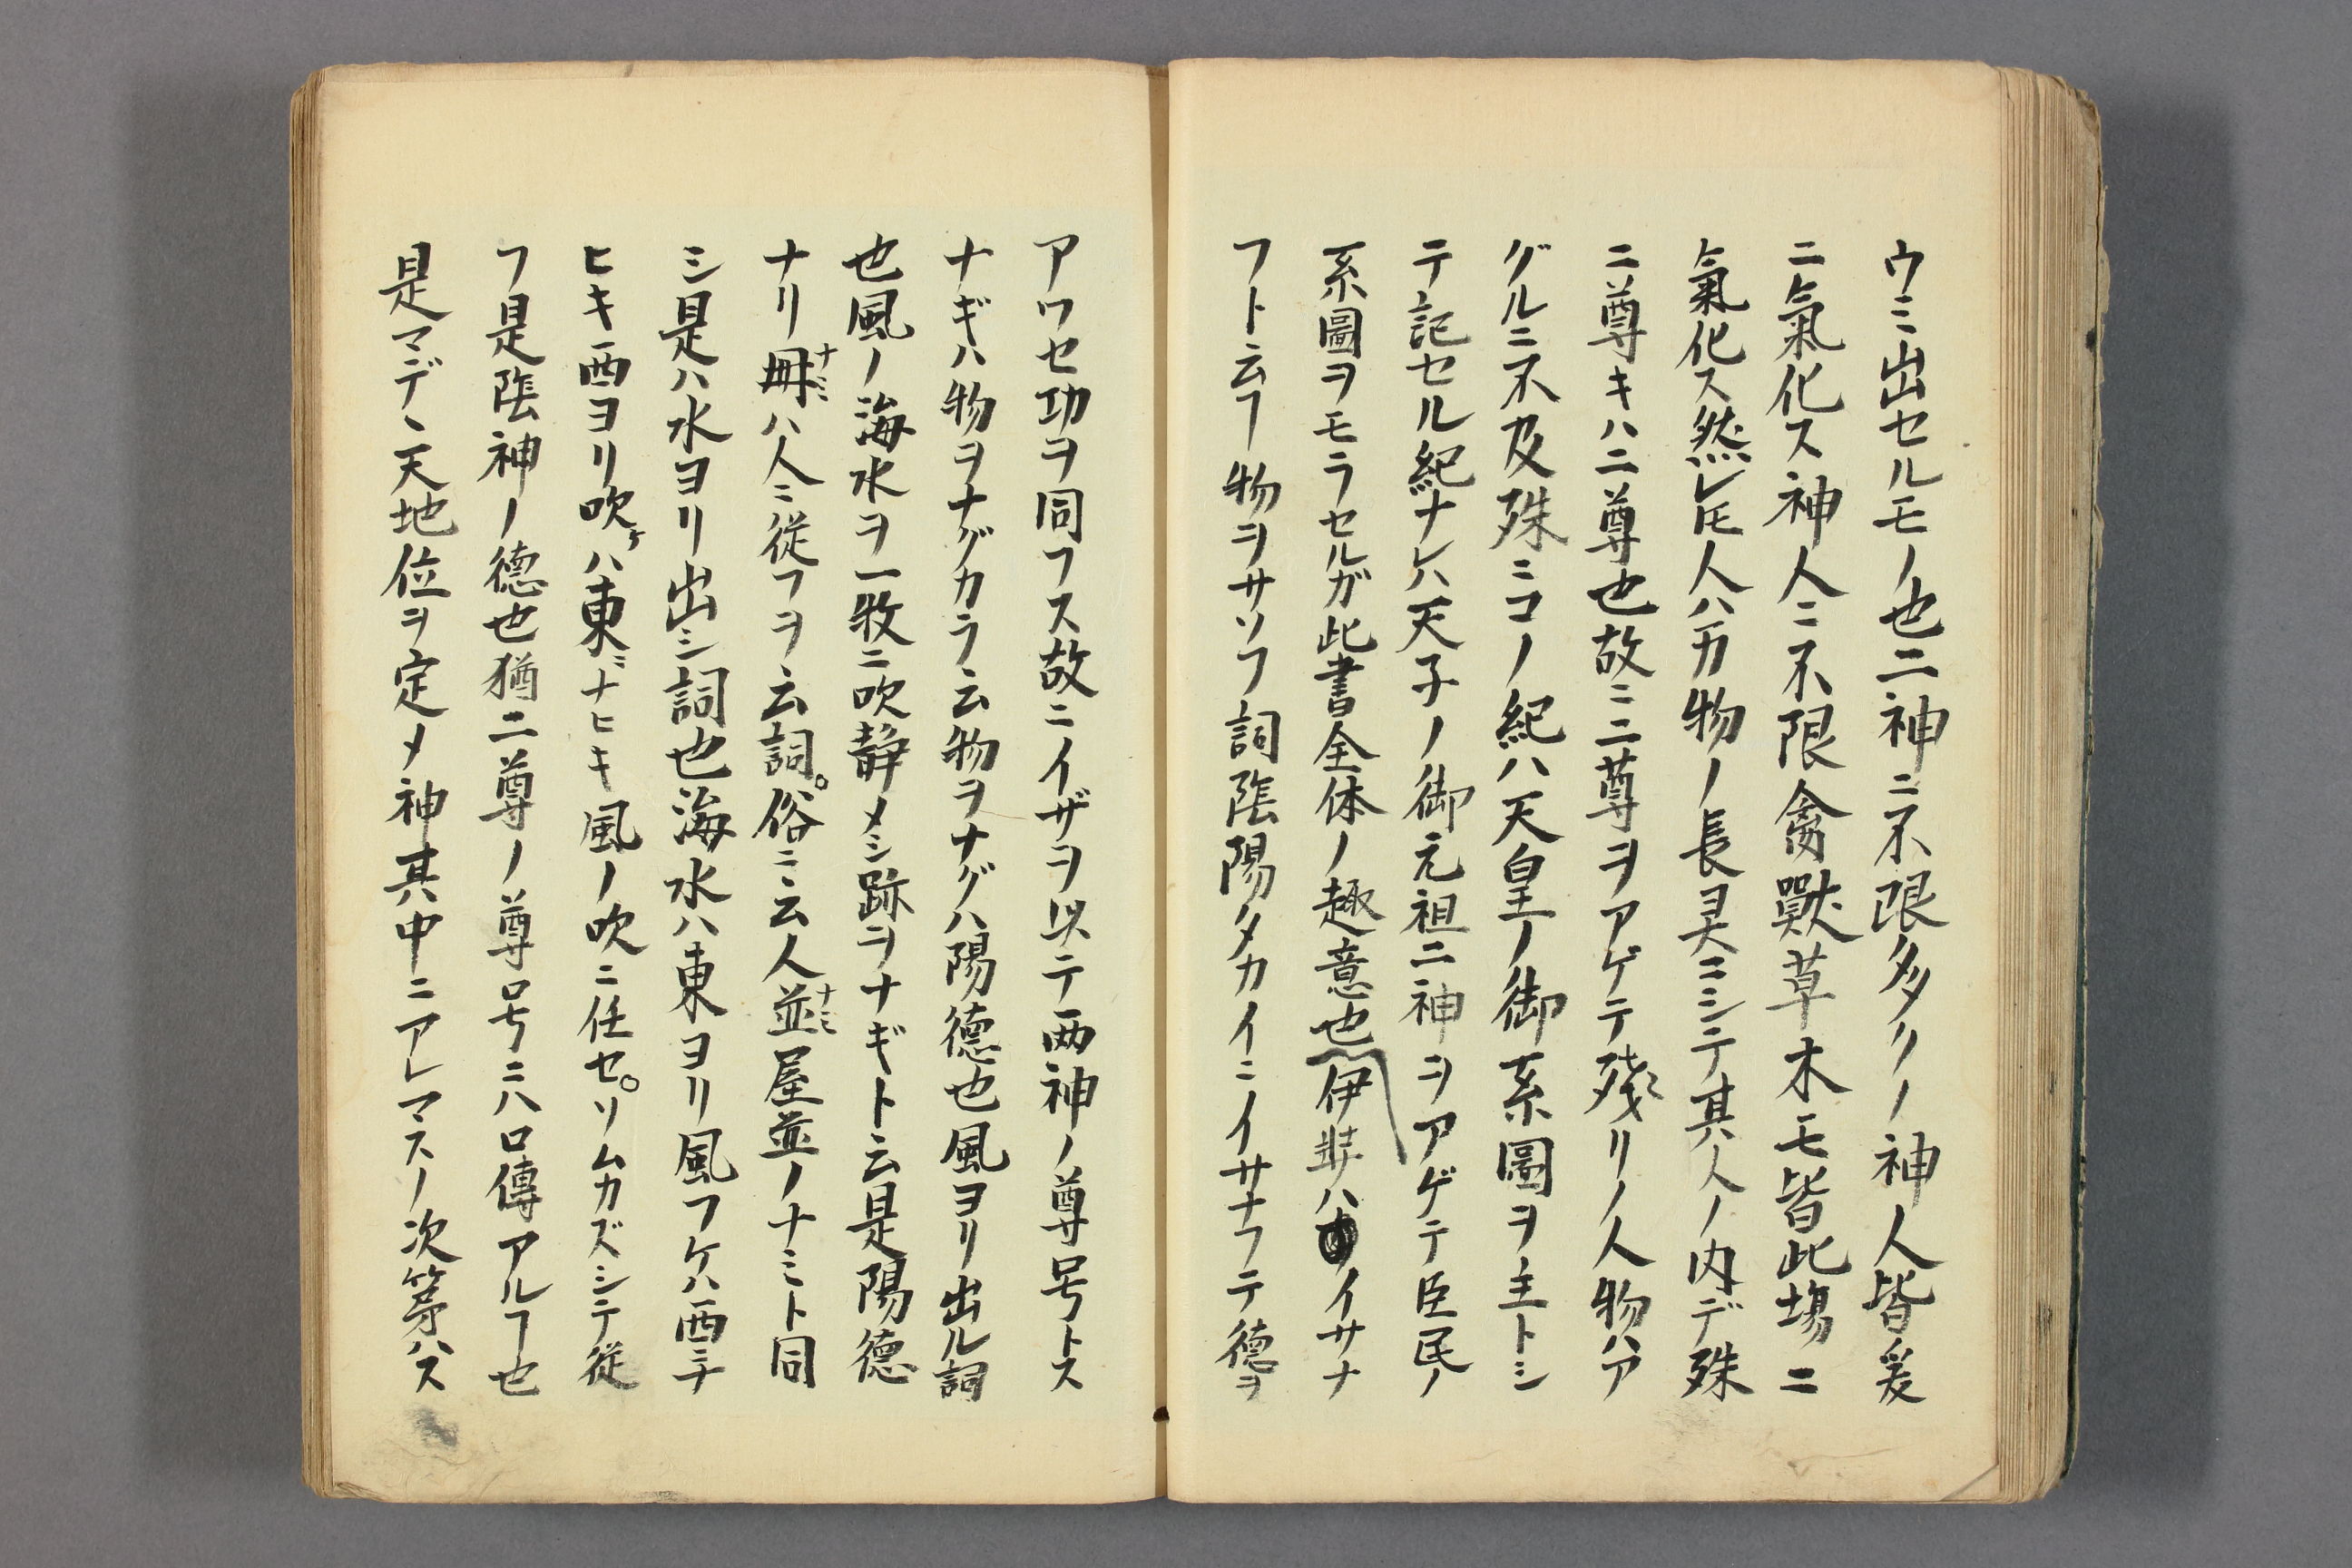 ウミ出セルモノ也二神ニ不限多クノ神人皆爰
ニ氣化ス神人ニ不限禽獸草木モ皆此場ニ
氣化ス然レ𪜈人ハ万物ノ長ヨ天ニシテ其人ノ内デ殊
ニ尊キハ二尊也故ニ二尊ヲアゲテ殘リノ人物ハア
グルニ不及殊ニコノ紀ハ天皇ノ御系圖ヲ主トシ
テ記セル紀ナレハ天子ノ御元祖二神ヲアゲテ臣民ノ
系圖ヲモラセルガ此書全体ノ趣意也伊弉ハイサナ
フト云ヿ物ヲサソフ詞陰陽タカイニイサナフテ德ヲ
アワセ功ヲ同フス故ニイザヲ以テ両神ノ尊号トス
ナギハ物ヲナグカラ云物ヲナグハ陽德也風ヨリ出ル詞
也風ノ海水ヲ一牧ニ吹静メシ跡ヲナギト云是陽德
ナリ冊ナミハ人ニ從フヲ云詞。俗ニ云人並ナミ屋並ノナミト同
シ是ハ水ヨリ出シ詞也海水ハ東ヨリ風フケハ西ニナ
ヒキ西ヨリ吹ケハ東ニナヒキ風ノ吹ニ任セ。ソムカズシテ從
フ是陰神ノ德也猶二尊ノ尊号ニハ口傳アルヿ也
是マデヽ天地位ヲ定メ神其中ニアレマスノ次第ハス